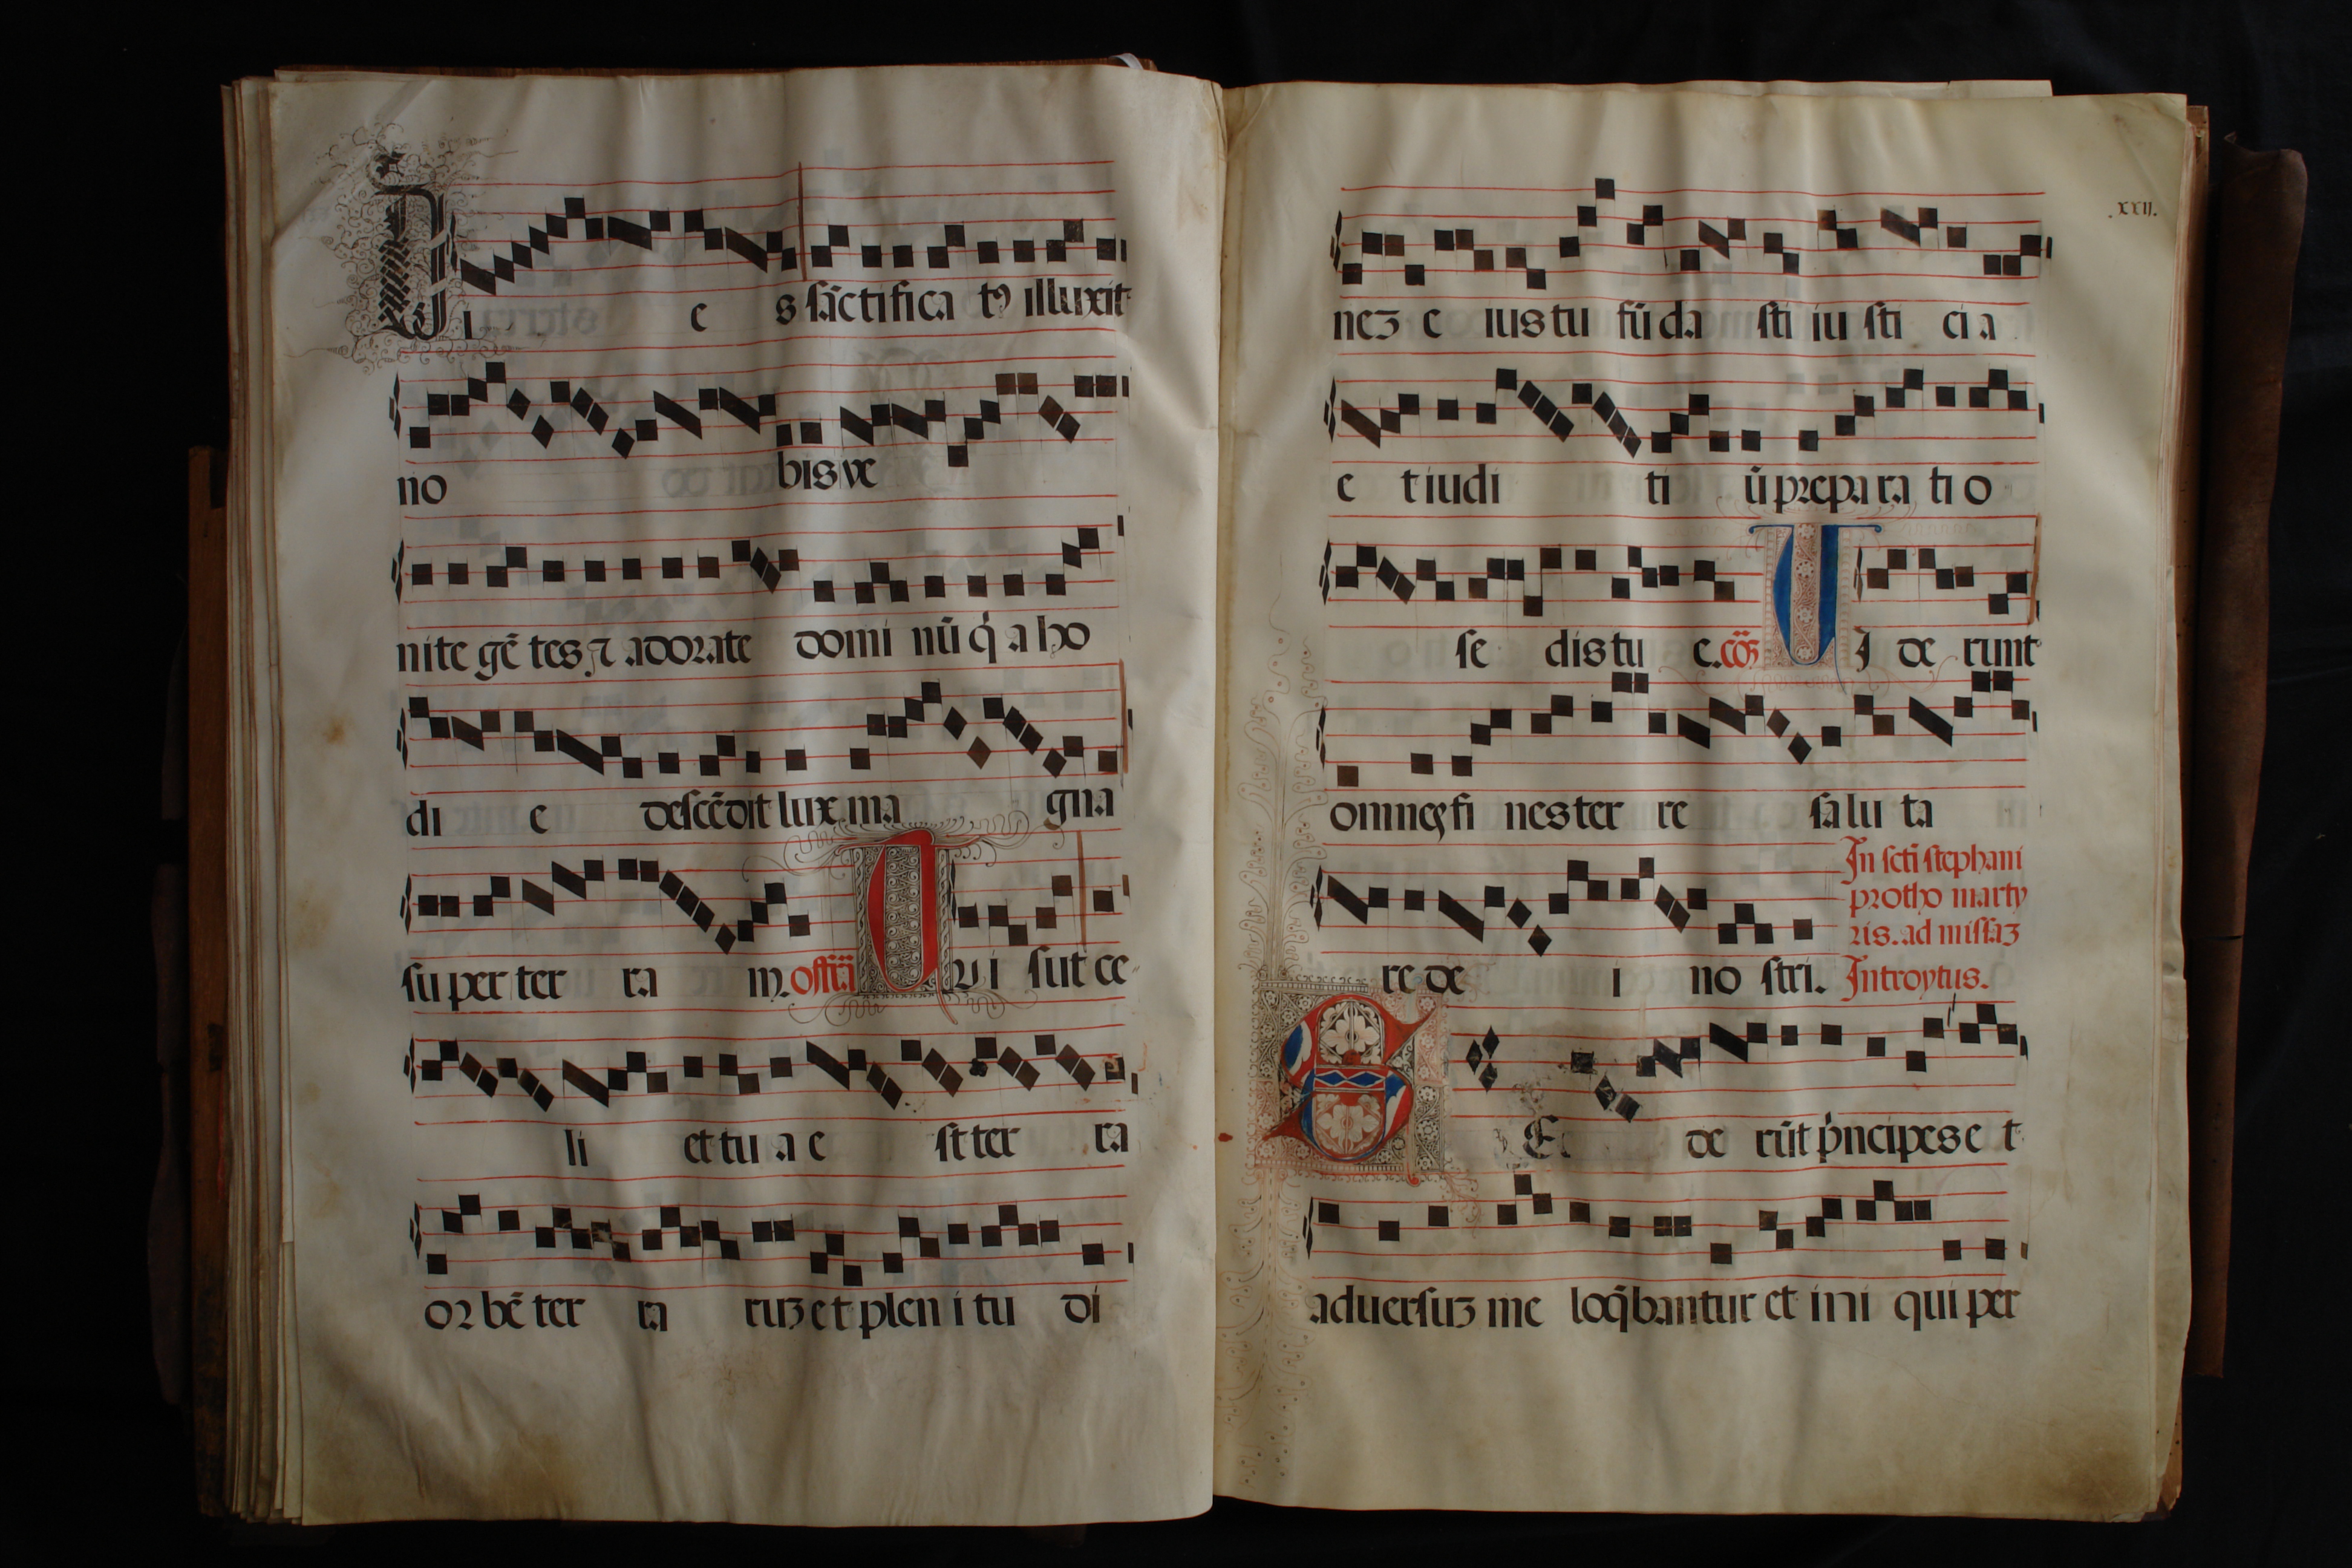 Di e s sãctifica tꝰ illuxit
no bis ve
nite gẽ tes ⁊ adorate domi nũ q̇ a ho
di e descẽdit lux ma gna
su per ter ra m. offr̃i TVi sũt ce
li et tu a e st ter ra
or bẽ ter ra ruꝫ et plen i tu di
.xxij.
neꝫ e ius tu fũ da sti iu sti ci a
e t iudi ti ũ prepa ra ti o
se dis tu e. cõꝫ VI de runt
omneꝫ fi nes ter re sa lu ta
re de i no stri. In scti stephani
protho marty
ris. ad missaꝫ
Introytus.
SE de rũt p̍ncipes e t
aduersuꝫ me loq̃bantur et ini qui per